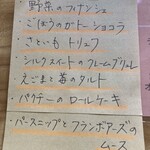 ・野菜のフィナンシェ
・ごぼうのガトーショコラ
・さといも トリュフ
・シルクスイートのクレームブリュレ
・えごまと苺のタルト
・パクチーの ロールケーキ
・パースニップとフランボアーズの
ムース